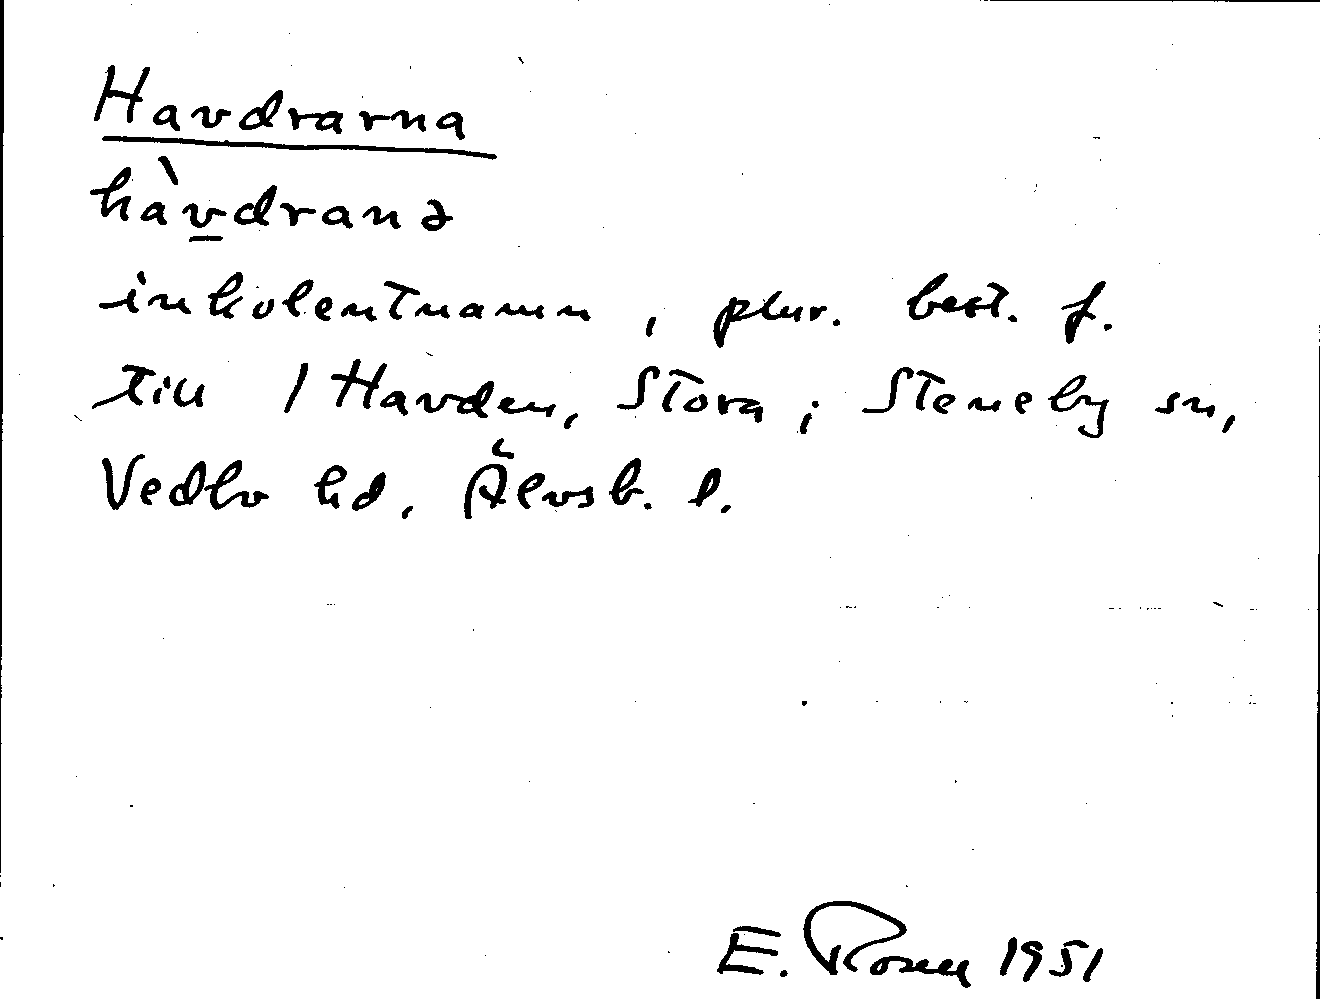 Havdrarna
hàvdranə
inkolentnamn, plur. best. f.
till / Havden, Stora; Steneby sn,
Vedbo hd, Älvsb. l.
E. Rosen 1951